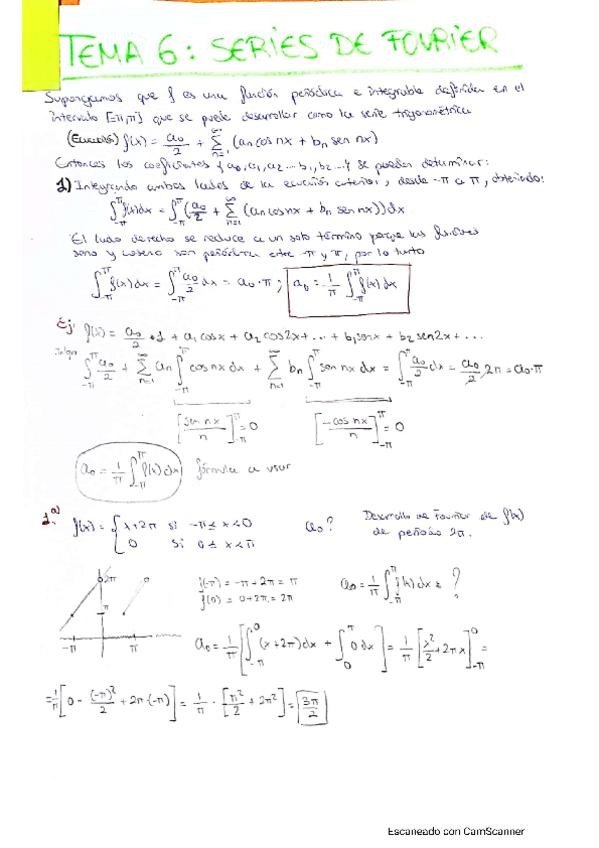 TEMA 6: SERIES DE FOURIER
Supongamos que f es una función periódica e integrable definida en el
intervalo [-π,π] que se puede desarrollar como la serie trigonométrica
(Ecuación) f(x) = a₀/2 + ∑_{n=1}^{∞} (aₙ cos nx + bₙ sen nx)
Entonces los coeficientes {a₀, a₁, a₂ ... b₁, b₂ ...} se pueden determinar:
1) Integrando ambos lados de la ecuación anterior, desde -π a π, obteniendo:
∫_{-π}^{π} f(x)dx = ∫_{-π}^{π} (a₀/2 + ∑_{n=1}^{∞} (aₙ cos nx + bₙ sen nx)) dx
El lado derecho se reduce a un solo término porque las funciones
seno y coseno son periódicas entre -π y π, por lo tanto
∫_{-π}^{π} f(x) dx = ∫_{-π}^{π} a₀/2 dx = a₀·π ; a₀ = 1/π ∫_{-π}^{π} f(x) dx
Ej. f(x) = a₀/2 · 1 + a₁ cos x + a₂ cos 2x + ... + b₁ sen x + b₂ sen 2x + ...
∫_{-π}^{π} a₀/2 + ∑_{n=1}^{∞} aₙ ∫_{-π}^{π} cos nx dx + ∑_{n=1}^{∞} bₙ ∫_{-π}^{π} sen nx dx = ∫_{-π}^{π} a₀/2 dx = a₀/2 · 2π = a₀·π
[sen nx / n]_{-π}^{π} = 0 [-cos nx / n]_{-π}^{π} = 0
a₀ = 1/π ∫_{-π}^{π} f(x) dx fórmula a usar
1. a) f(x) = { x+2π si -π ≤ x < 0 a₀? Desarrollo de Fourier de f(x)
0 si 0 ≤ x < π de período 2π.
2π
π
-π π
f(-π) = -π + 2π = π a₀ = 1/π ∫_{-π}^{π} f(x) dx = ?
f(0) = 0 + 2π = 2π
a₀ = 1/π [∫_{-π}^{0} (x+2π) dx + ∫_{0}^{π} 0 dx] = 1/π [x²/2 + 2πx]_{-π}^{0} =
= 1/π [0 - (-π)²/2 + 2π·(-π)] = 1/π · [π²/2 + 2π²] = 3π/2
Escaneado con CamScanner